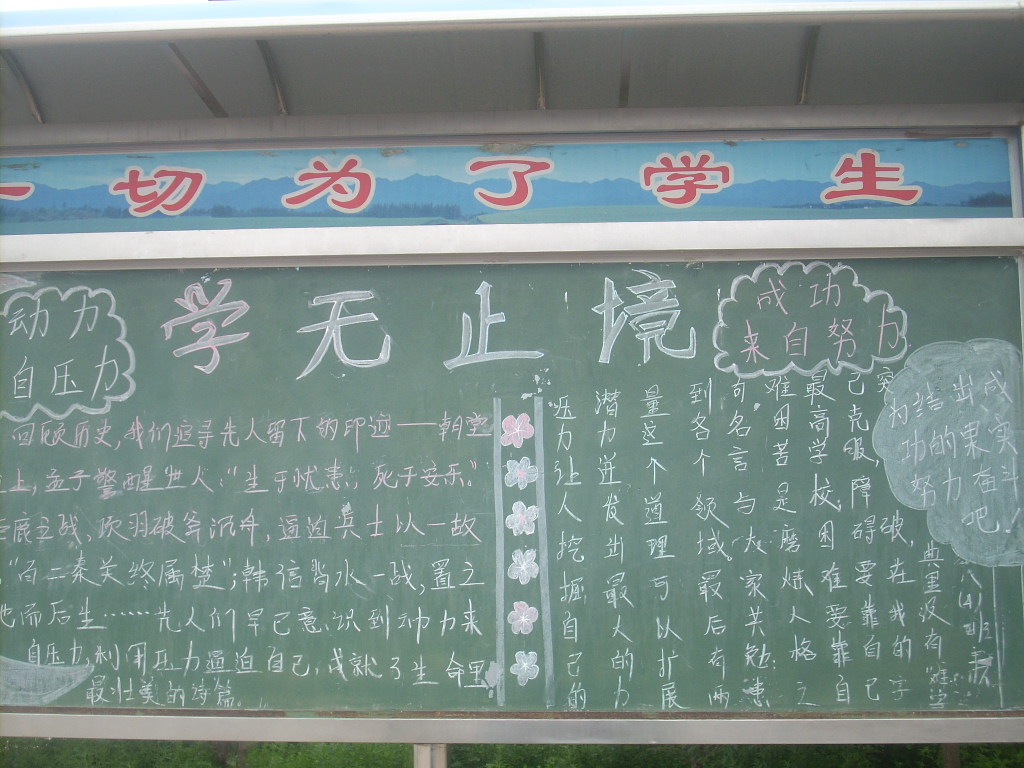 一切为了学生
动力
自压力
学无止境
成功
来自努力
为结出成
功的果实
努力奋斗
吧！
回顾历史,我们追寻先人留下的印迹——朝堂
上,孟子警醒世人:“生于忧患,死于安乐。”
之战,羽破釜沉舟,逼迫兵士以一故
“百二秦关终属楚”;韩信背水一战,置之
地而后生……先人们早已意识到动力来
自压力,利用压力逼迫自己,成就了生命里
最壮美的诗篇。
压力让人挖掘自己的
潜力迸发出最大的力
量这个道理可以扩展
到各个领域。最后有两
句名言与大家共勉:患
难困苦是磨炼人格之
最高学校。困难要靠自
己克服,障碍要靠自己
突破,在我的字
典里没有“难”字
八(4)班